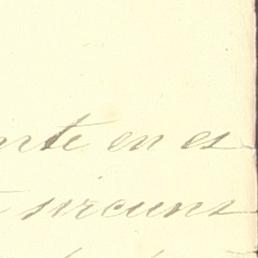 nte en es
sircuns